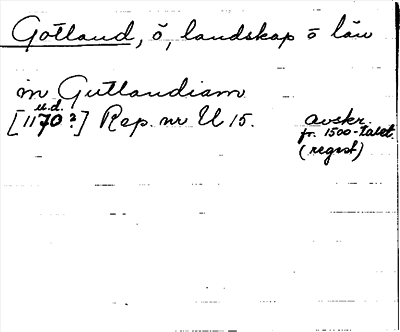 Gotland, ö, landskap o län
in Gutlandiam
u.d.
[1170?] Rep. nr U 15.
avskr.
fr. 1500-talet.
(regest)